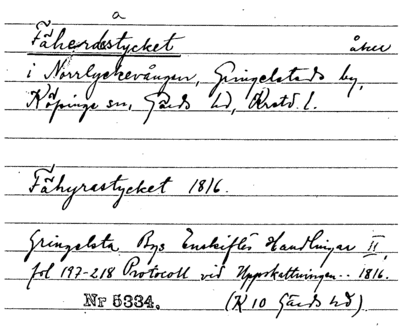 a
Fäherdestycket åker
i Norrlyckevången, Gringelstads by,
Köpinge sn, Gärds hd, Krstd. l.
Fähyrastycket 1816.
Gringelsta Bys Enskiftes Handlingar II,
fol 197-218 Protocoll vid Uppskattningen.. 1816.
Nr 5334. (K 10 Gärds hd)